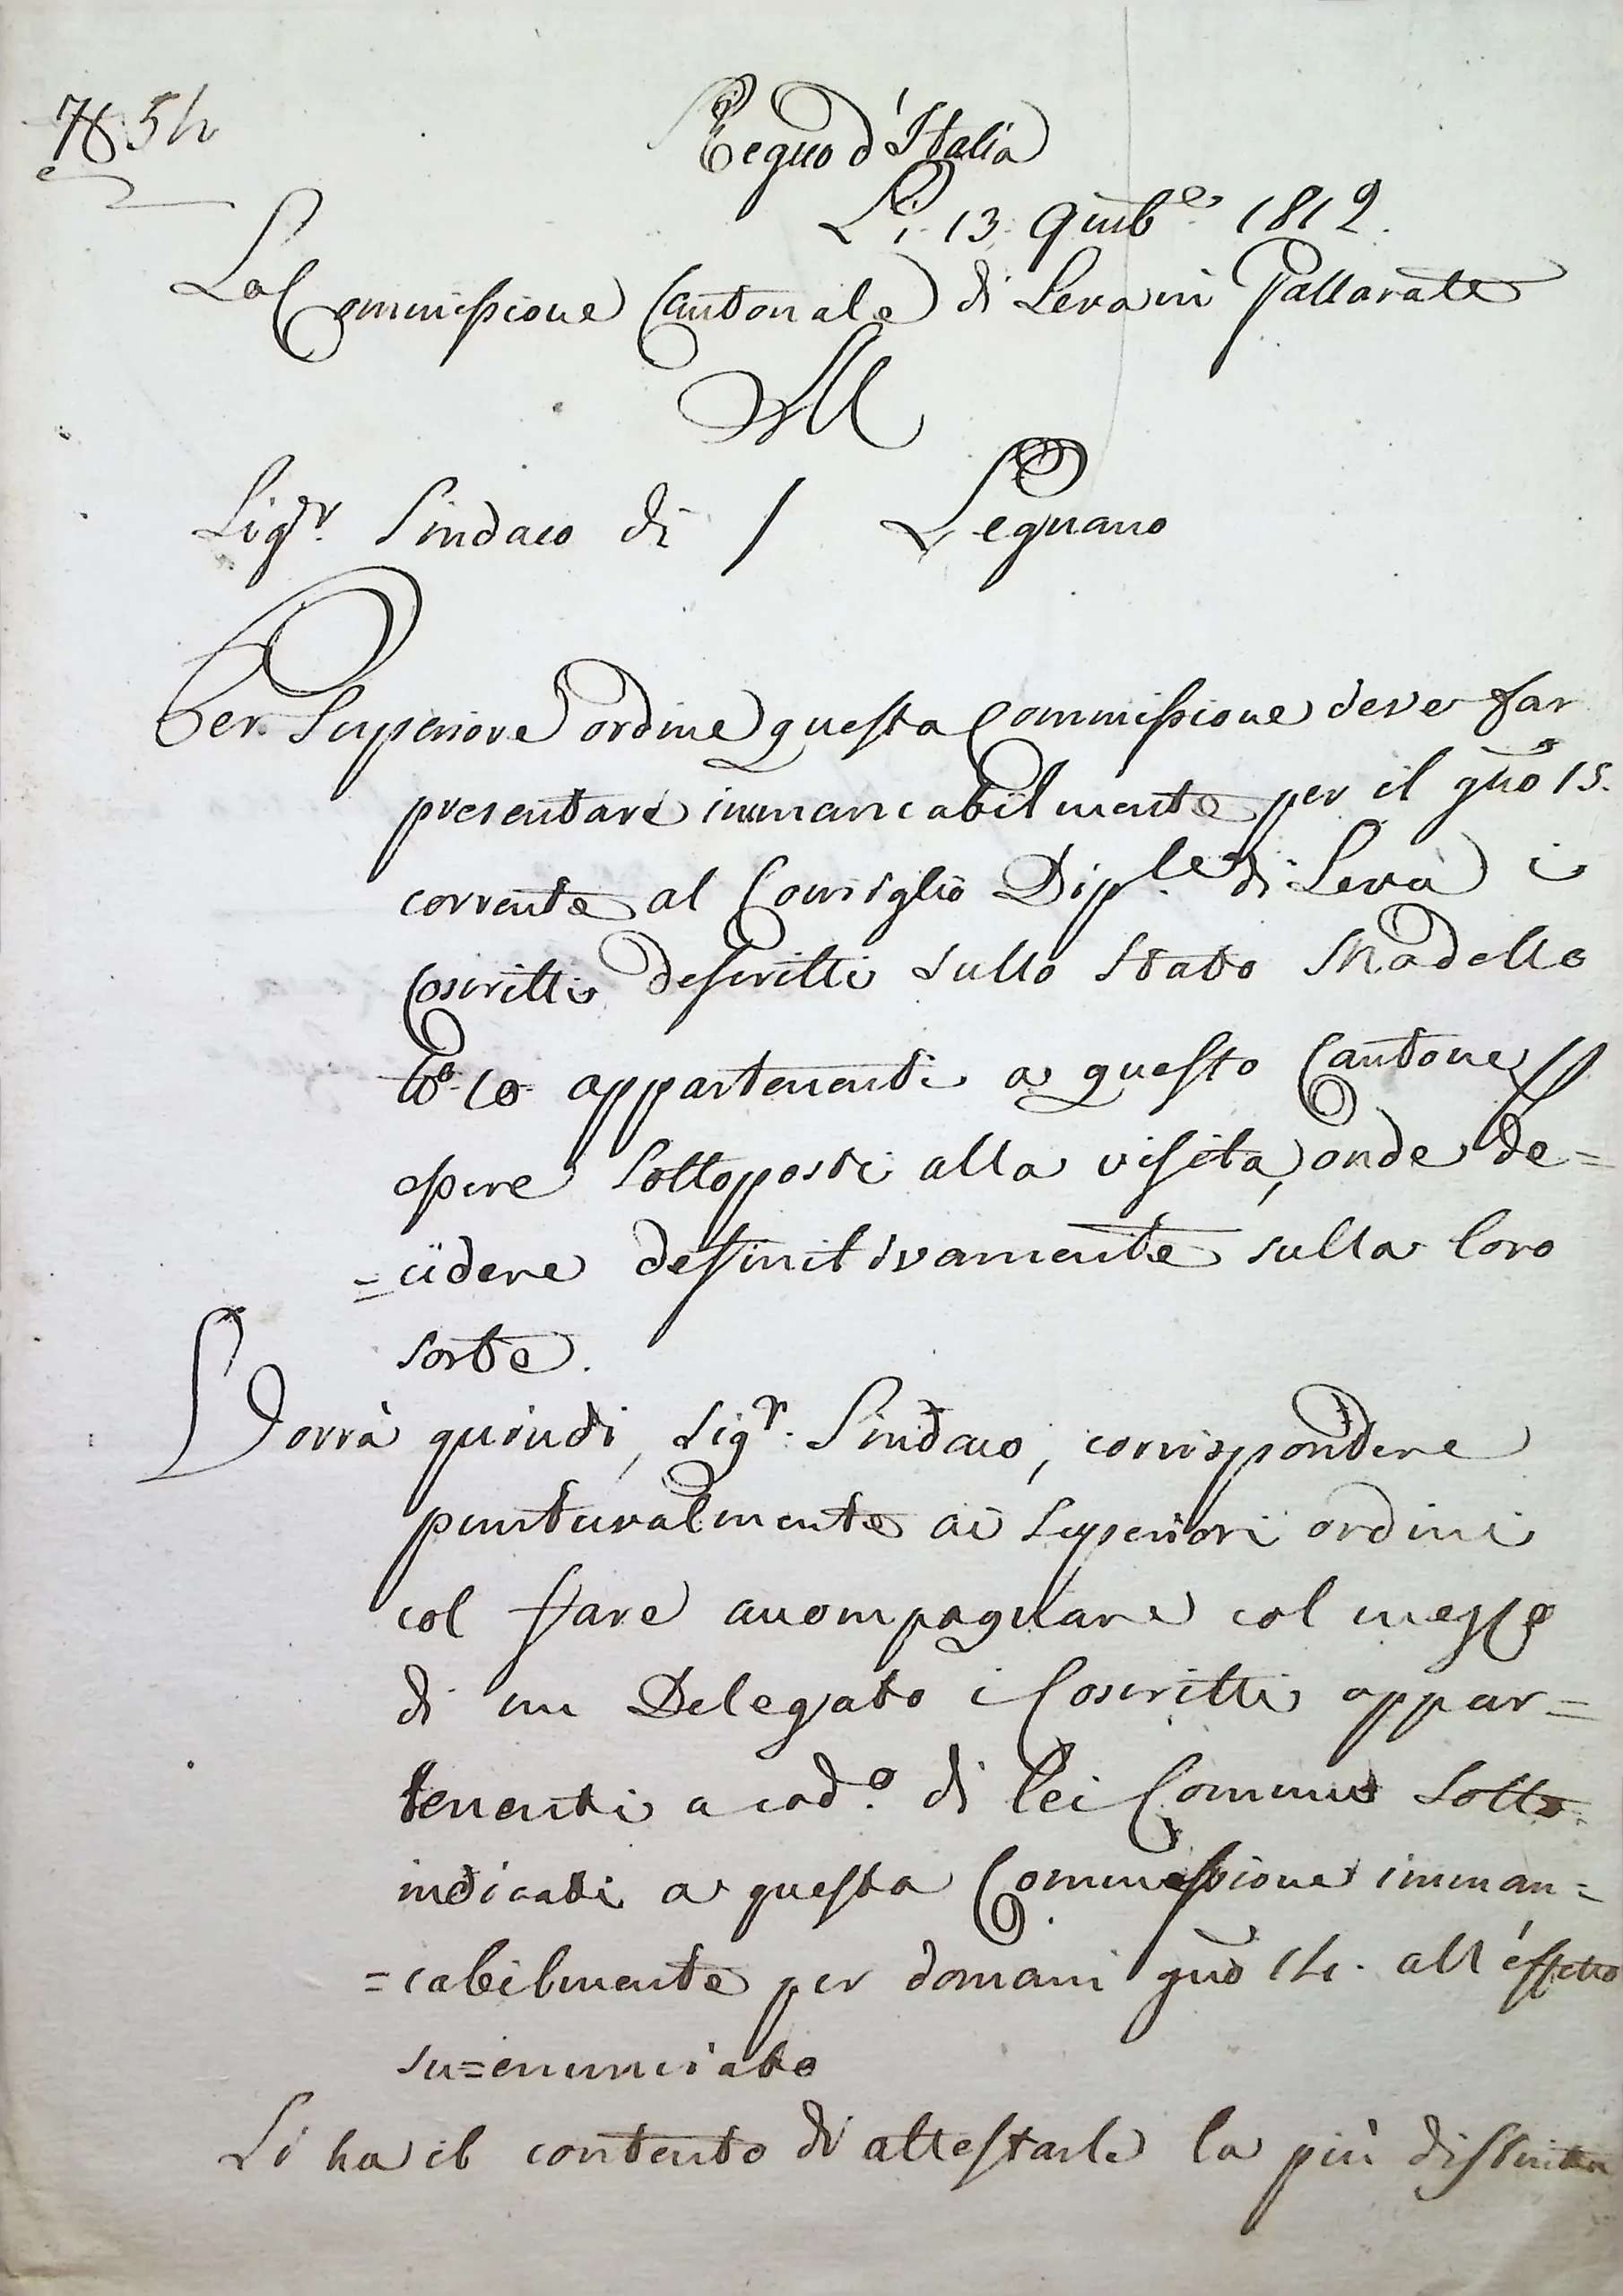 Regno d'Italia
Li. 13. 9mb.e 1812.
La Commissione Cantonale di Leva in Gallarate
Al
Sig.r Sindaco di / Legnano
Per Superiore ordine questa Commissione deve far
presentare immancabilmente per il gño 15.
corrente al Consiglio Dip.le di Leva i
Coscritti descritti sullo Stato Modello
N.o 10. appartenenti a questo Cantone p
essere sottoposti alla visita, onde de=
=cidere definitivamente sulla loro
sorte.
Dorrà quindi, Sig.r Sindaco, corrispondere
puntualmente ai Superiori ordini
col fare accompagnare col mezzo
di un Delegato i Coscritti appar=
tenenti a cod.o di lei Comune sotto
indicati a questa Commissione imman=
=cabilmente per domani gño 14. all'effetto
su=enunciato
Si ha il contento di attestarle la più distinta